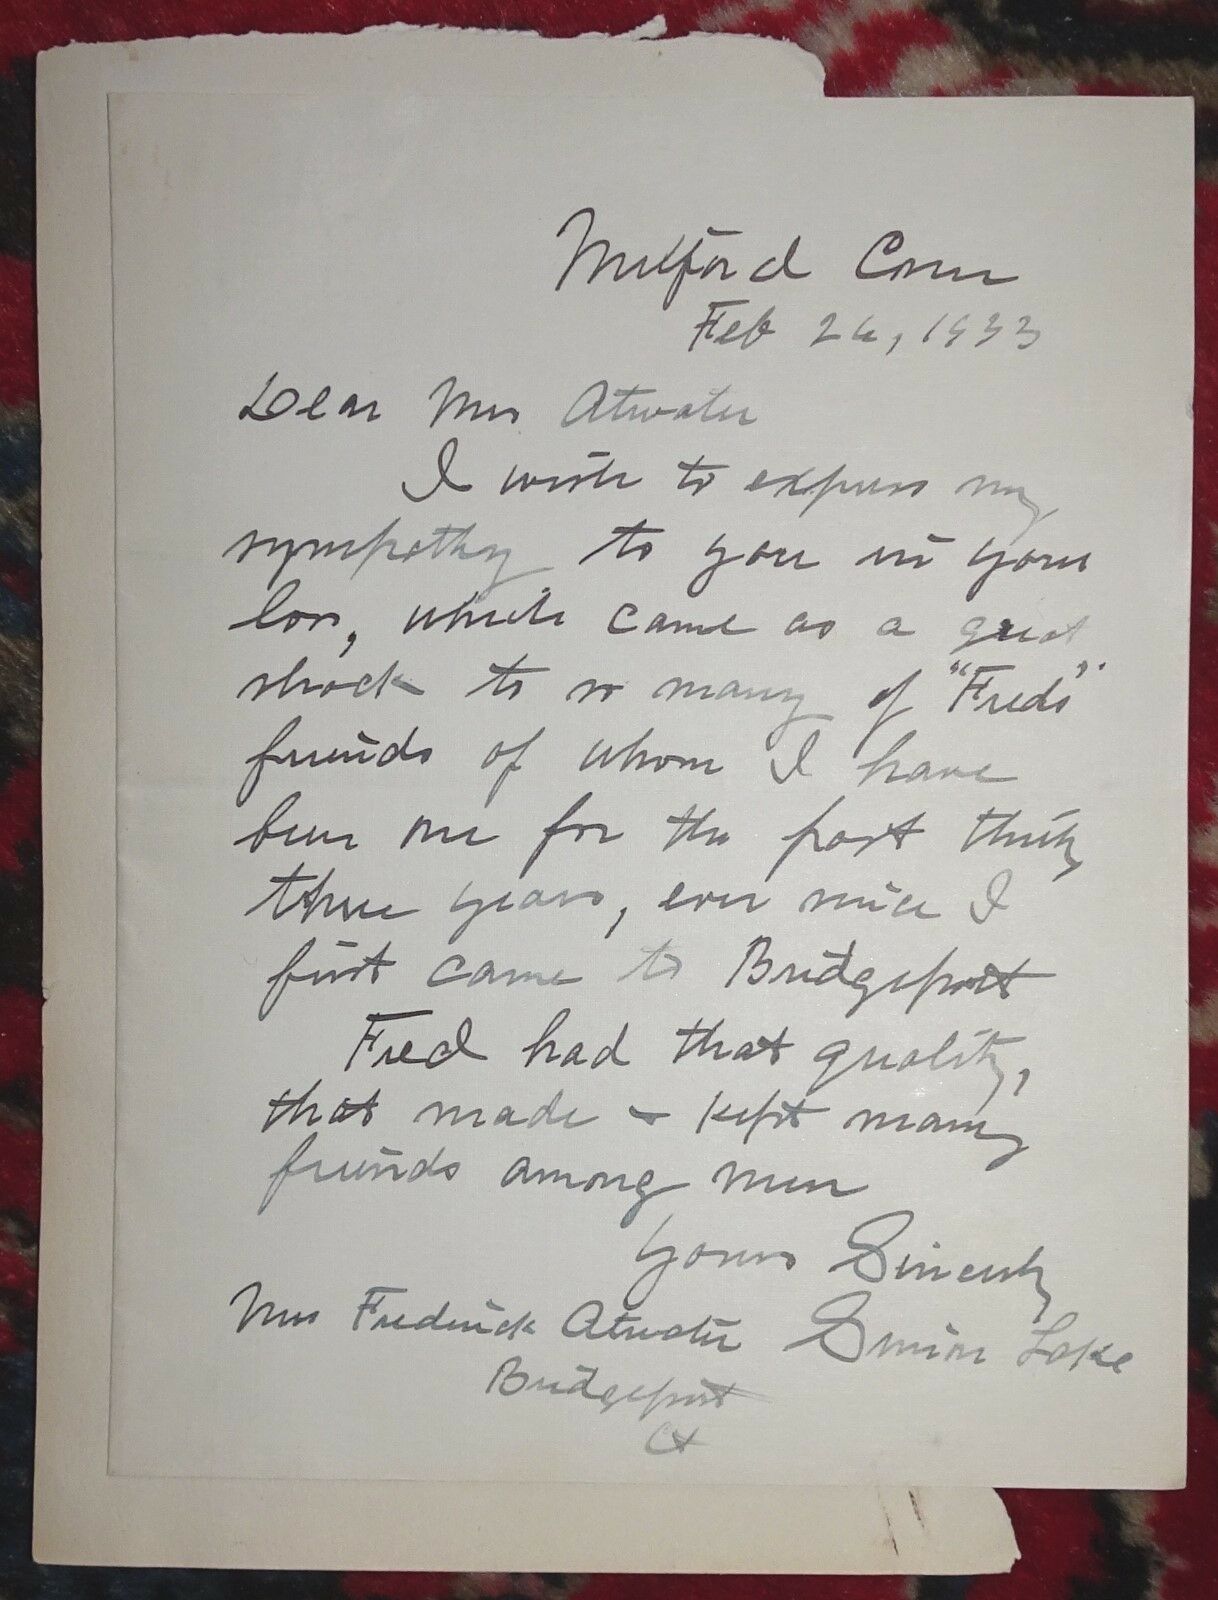 Milford Conn
Feb 26, 1933
Dear Mrs Atwater
I wish to express my
sympathy to you in your
loss, which came as a great
shock to so many of "Freds"
friends of whom I have
been one for the past thirty
three years, ever since I
first came to Bridgeport
Fred had that quality,
that made & kept many
friends among men
Yours Sincerely
Simon Lake
Mrs Frederick Atwater
Bridgeport
Ct